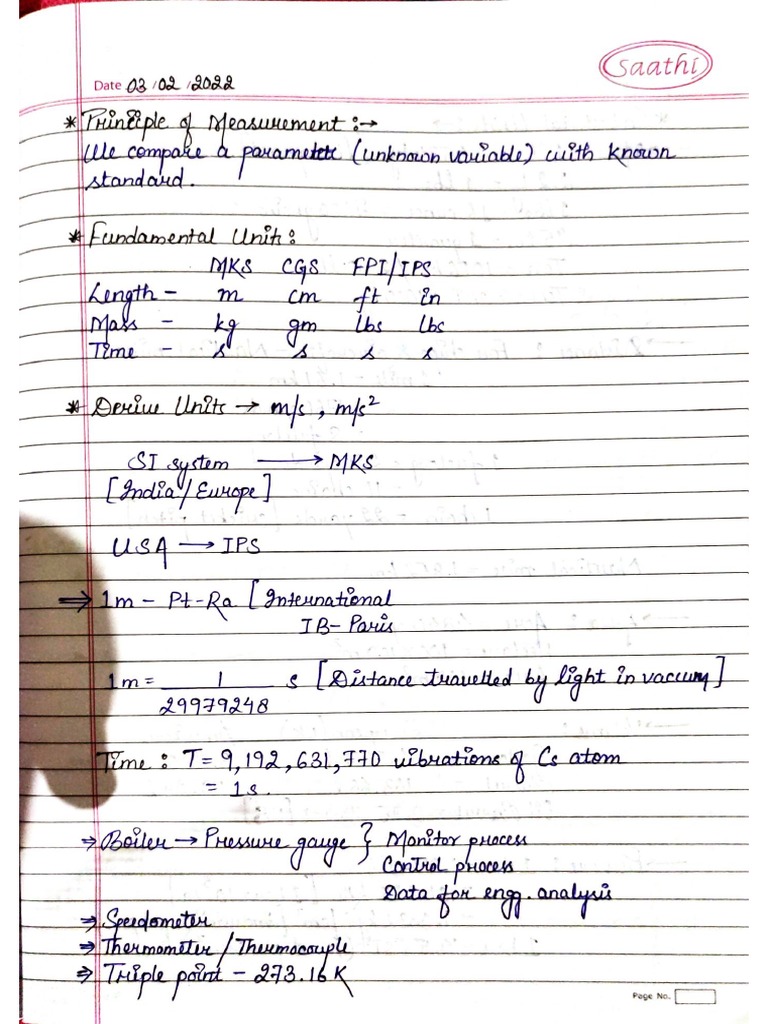 Saathi
Date 03/02/2022
* Principle of Measurement :→
We compare a parameter (unknown variable) with known
standard.
* Fundamental Units:
MKS CGS FPI/IPS
Length - m cm ft in
Mass - kg gm lbs lbs
Time - s s s s
* Derive Units → m/s, m/s²
SI system ⟶ MKS
[India/Europe]
USA ⟶ IPS
⇒ 1m - Pt-Ra [International
IB-Paris
1m = 1/29979248 s [Distance travelled by light in vaccum]
Time : T = 9,192,631,770 vibrations of Cs atom
= 1s.
⇒ Boiler → Pressure gauge } Monitor process
Control process
Data for engg. analysis
⇒ Speedometer
⇒ Thermometer/Thermocouple
⇒ Triple point - 273.16K
Page No.